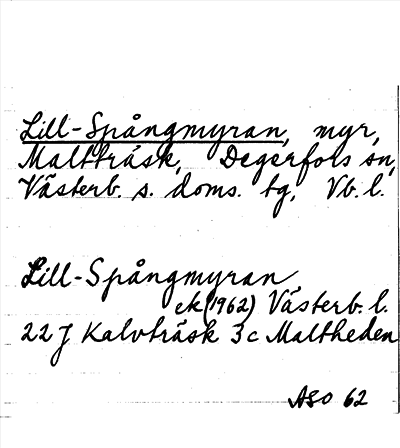 Lill-Spångmyran, myr,
Maltträsk, Degerfors sn,
Västerb. s. doms. tg, Vb. l.
Lill-Spångmyran
ek (1962) Västerb. l.
22 J Kalvträsk 3c Maltheden
ASO 62